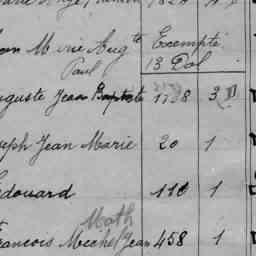 Marie Aug^te Exempté
Paul 13 Dol
Auguste Jean Baptiste 1738 3 II
Joseph Jean Marie 20 1
Edouard 110 1
Math
Francois Michel Jean 458 1